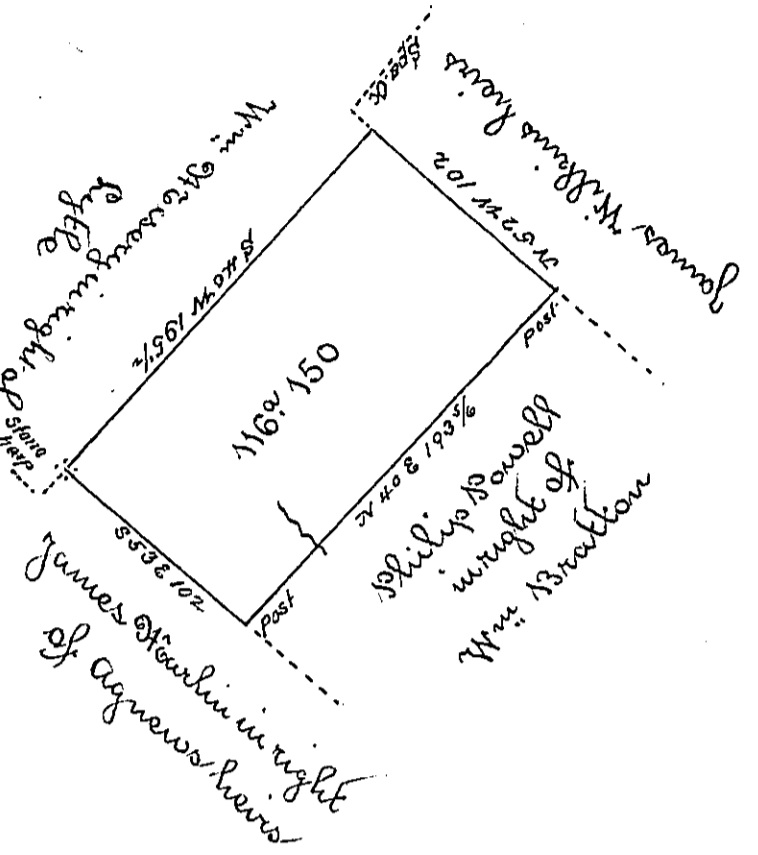 Sp. Ok
James Wilkins heirs
N 52 W 102
Wm. in right of
Lytle
S 40 W 195 1/2
116a. 150
post
N 40 E 193 5/6
Philip Powell
in right of
Wm. Bratton
Stone
heap
S 53 E 102
post
James in right
of Agnews heirs